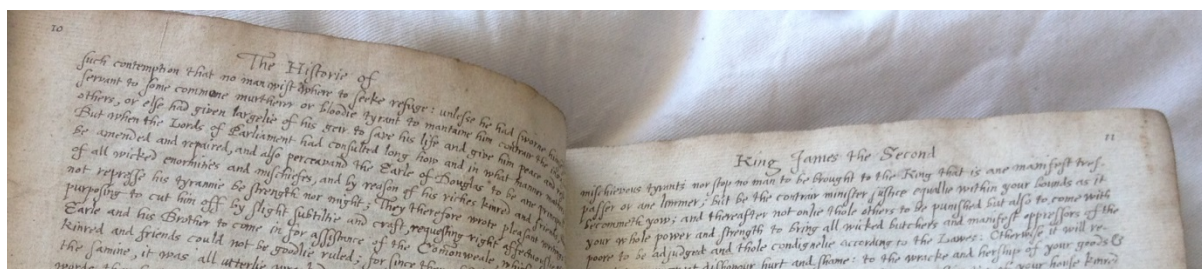 10
The Historie of
such contemption that no man wist where to seeke refuge: unlesse he had sworne
servant to some commone murtheirr or bloodie tyrant to mantaine him contrair the
others, or else had given largelie of his geir to save his life and give him peace and
But when the Lords of Parliament had consulted long how and in what maner
be amended and repaired, and also perceavand the Earle of Douglas to be ane
of all wicked enormities and mischiefes, and by reason of his riches kinred and
not represse his tyrannie be strength nor might; They therefore wrote pleasant
purposing to cut him off by slight subtiltie and craft, requesting right affectiously
Earle and his Brother to come in for assistance of the Commonweale,
kinred and friends could not be goodlie ruled; for since
the samine, it was all utterlie
11
King James the Second
mischievous tyrants nor stop no man to be brought to the King that is ane manifest tres-
passer or ane limmer; but be the contrair minister justice equallie within your bounds as it
becommeth yow; and thereafter not onlie thole others to be punished but also to come with
your whole power and strength to bring all wicked butchers and manifest oppressors of the
poore to be adjudgit and thole condignelie according to the Lawes: Otherwise it will re-
dishonour hurt and shame: to the wracke and hership of your goods &
your horse kinred